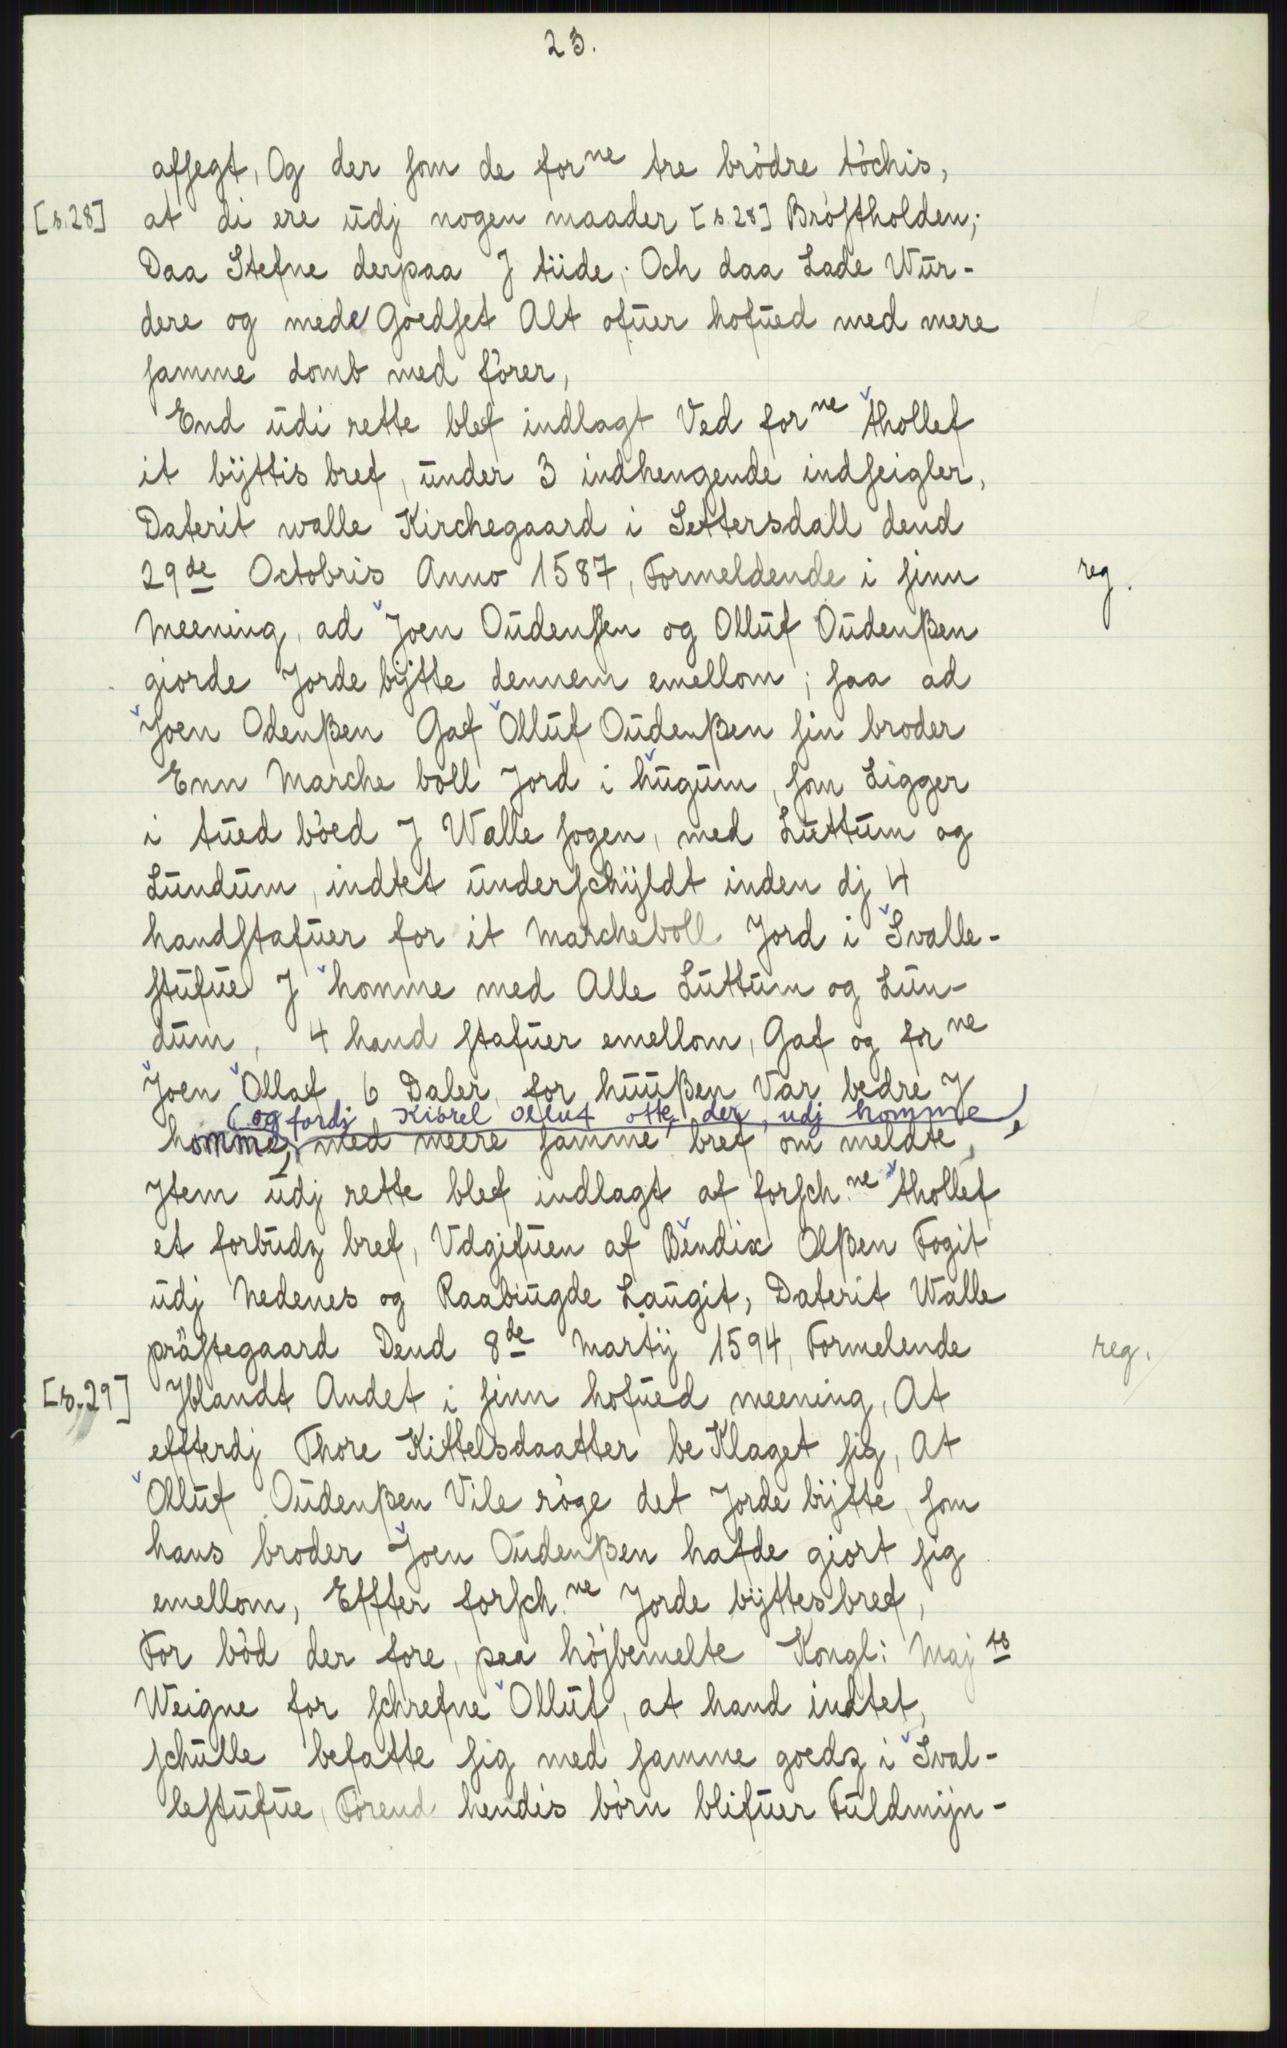 23.
afsegt, Og der som de forne tre brödre töchis,
[s.28] at di ere üdj nogen maader [s.28] Bröstholden;
Daa Stefne derpaa J tüde; Och daa Lade Wür-
dere og mede Goedset Alt ofüer hofüed med mere
samme domb med förer,
End üdi rette blef indlagt Ved forne thollef
it byttis bref, ünder 3 indhengende indseigler,
Daterit walle Kirchegaard i Settersdall dend
29de Octobris Anno 1587, Formeldende i sinn reg.
Meening, ad Joen Oüdensen og Ollüf Oüdenßen
giorde Jorde bÿtte dennem emellom; saa ad
Joen Odenßen Gaf Ollüf Oüdenßen sin broder
Enn Marche boll Jord i hügüm, som Ligger
i tüed böed J Walle sogen, med Lüttüm og
Lündüm, indtet ünderschÿldt inden dj 4
handstafüer for it Marcheboll Jord i Svalle-
stüfüe J homme med Alle Lüttüm og Lün-
düm, 4 hand stafüer emellom, Gaf og forne
Joen Ollaf 6 Daler, for hüüßen Var bedre J
(og fordj Kiörel Olluf otte der, udj homme)
homme, med meere samme bref om meldte,
Jtem üdj rette blef indlagt af forschne thollef
et forbüdz bref, Vdgifüen af Bendix Olßen Fogit
üdj Nedenes og Raabiügde Laügit, Daterit Walle
prästegaard Dend 8de Martÿ 1594, Formelende reg.
[s.29] Jblandt Andet i sinn hofüed meening, At
effterdj Thore Kittelsdaatter be Klaget sig, At
Ollüf Oüdenßen Vile röge det Jorde bÿtte, som
hans broder Joen Oüdenßen hafde giort sig
emellom, Effter forsch.ne Jorde bÿttesbref,
For böd der fore, paa höjbemelte Kongl: Majts
Weigne for schrefne Ollüf, at hand indtet,
schülle befatte sig med samme goedz i Sval-
lestüfüe, Förend hendis börn blifüer Füldmÿn-